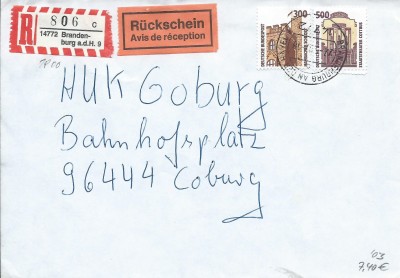 R 806 c
14772 Branden-
burg a.d.H. 9
Rückschein
Avis de réception
300
500
DEUTSCHE BUNDESPOST
HUK Coburg
Bahnhofsplatz
96444 Coburg
'03
7,40 €